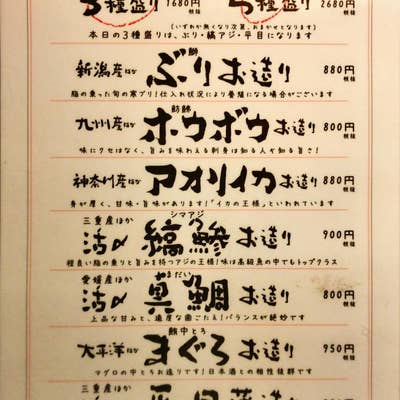 3種盛り 1680円 税抜 5種盛り 2680円 税抜
(いずれか無くなり次第、おまかせとなります)
本日の3種盛りは、ぶり・縞アジ・平目になります
鰤
新潟産ほか ぶりお造り 880円 税抜
脂の乗った旬の寒ブリ!仕入れ状況により養殖になる場合がございます
魴鮄
九州産ほか ホウボウお造り 800円 税抜
味にクセはなく、旨みを味わえる刺身は知る人ぞ知る旨さ!
神奈川産ほか アオリイカお造り 880円 税抜
身が厚く、甘味・旨味があります!「イカの王様」といわれています
シマアジ
三重産ほか 活〆 縞鯵 お造り 900円 税抜
程良い脂の乗りと旨みを持つアジの王様!味は高級魚の中でもトップクラス
まだい
愛媛産ほか 活〆 真鯛 お造り 800円 税抜
上品な甘みと、適度な歯ごたえ!バランスが絶妙です
鮪中とろ
太平洋ほか まぐろお造り 950円 税抜
マグロの中とろお造りです!日本酒との相性抜群です
三重産ほか